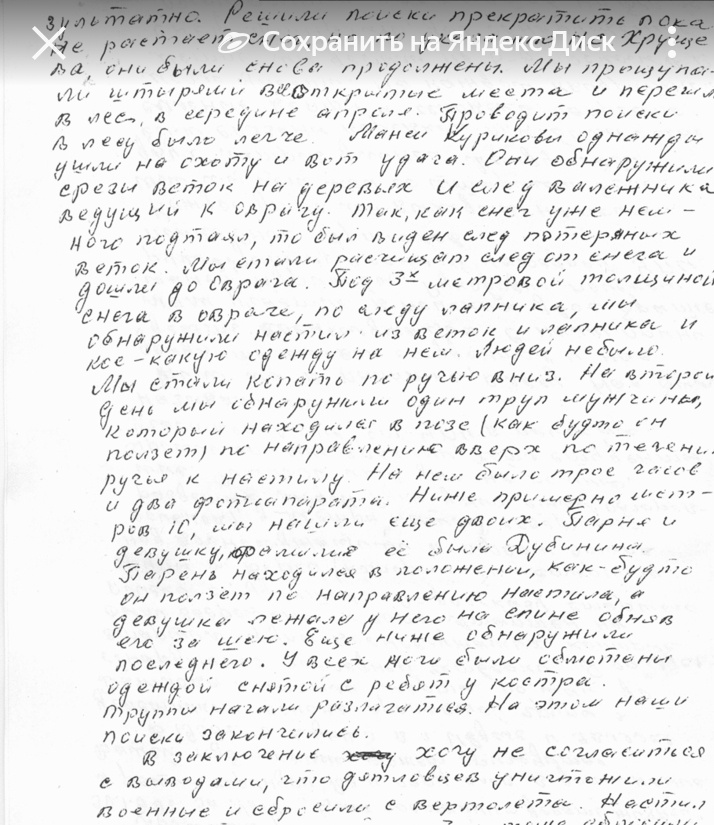 зультатно. Решили поиски прекратить пока
не растает
Сохранить на Яндекс Диск
Хруще
ва, они были снова продолжены. Мы прощупа-
ли штырями все открытые места и переш
в лес, в середине апреля. Проводит поиски
в лесу было легче. Манси Куриковы однажды
ушли на охоту и вот удача. Они обнаружили
срезы веток на деревьях и след валежника
ведущий к оврагу. Так, как снег уже нем-
ного подтаял, то был виден след потеряных
веток. Мы стали расчищат след от снега и
дошли до оврага. Под 3х метровой толщиной
снега в овраге, по следу лапника, мы
обнаружили настил из веток и лапника и
кое-какую одежду на нем. Людей небыло.
Мы стали копать по ручью вниз. На второй
день мы обнаружили один труп мужчины,
который находился в позе (как будто он
ползет) по направлению вверх по течени
ручья к настилу. На нем было трое часов
и два фотоапарата. Ниже примерно мет-
ров 10, мы нашли еще двоих. Парня и
девушку, фамилия её была Дубинина.
Парень находился в положении, как-будто
он ползёт по направлению настила, а
девушка лежала у него на спине обняв
его за шею. Еще ниже обнаружили
последнего. У всех ноги были обмотаны
одеждой снятой с ребят у костра.
Труппы начали разлагаться. На этом наши
поиски закончились.
В заключение хочу не согласиться
с выводами, что дятловцев уничтожили
военные и сбросили с вертолета. Настил